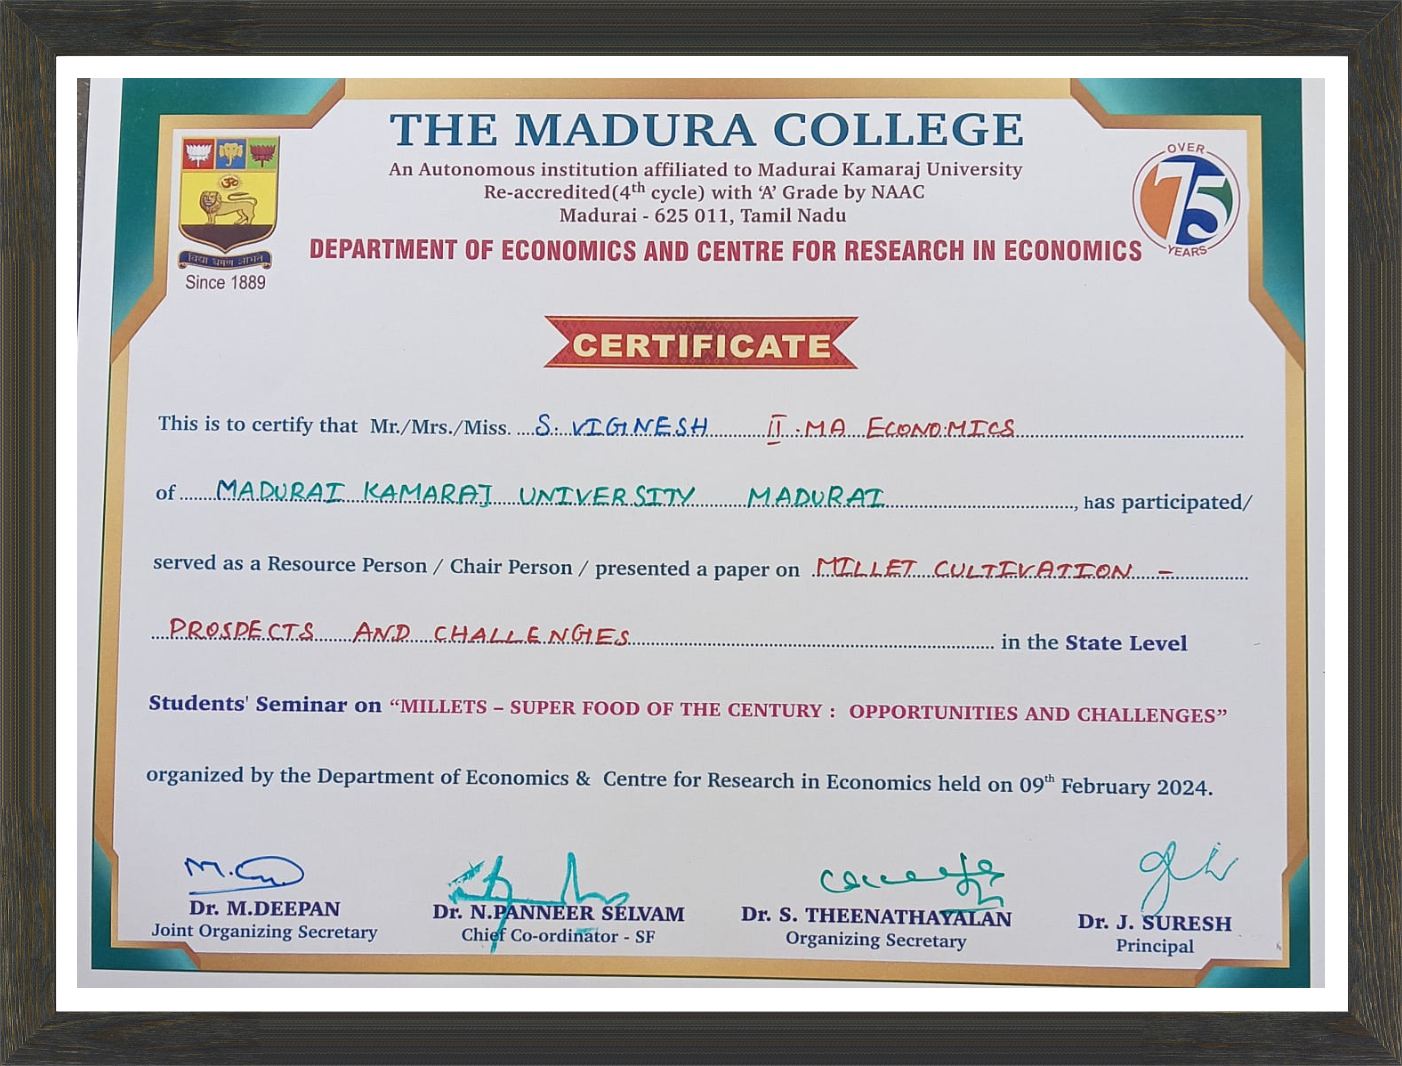 THE MADURA COLLEGE
An Autonomous institution affiliated to Madurai Kamaraj University
Re-accredited(4th cycle) with ‘A’ Grade by NAAC
Madurai - 625 011, Tamil Nadu
DEPARTMENT OF ECONOMICS AND CENTRE FOR RESEARCH IN ECONOMICS
Since 1889
OVER
75
YEARS
CERTIFICATE
This is to certify that Mr./Mrs./Miss. S. VIGNESH II . MA ECONOMICS
of MADURAI KAMARAJ UNIVERSITY MADURAI, has participated/
served as a Resource Person / Chair Person / presented a paper on MILLET CULTIVATION -
PROSPECTS AND CHALLENGES in the State Level
Students' Seminar on “MILLETS – SUPER FOOD OF THE CENTURY : OPPORTUNITIES AND CHALLENGES”
organized by the Department of Economics & Centre for Research in Economics held on 09th February 2024.
Dr. M.DEEPAN
Joint Organizing Secretary
Dr. N.PANNEER SELVAM
Chief Co-ordinator - SF
Dr. S. THEENATHAYALAN
Organizing Secretary
Dr. J. SURESH
Principal